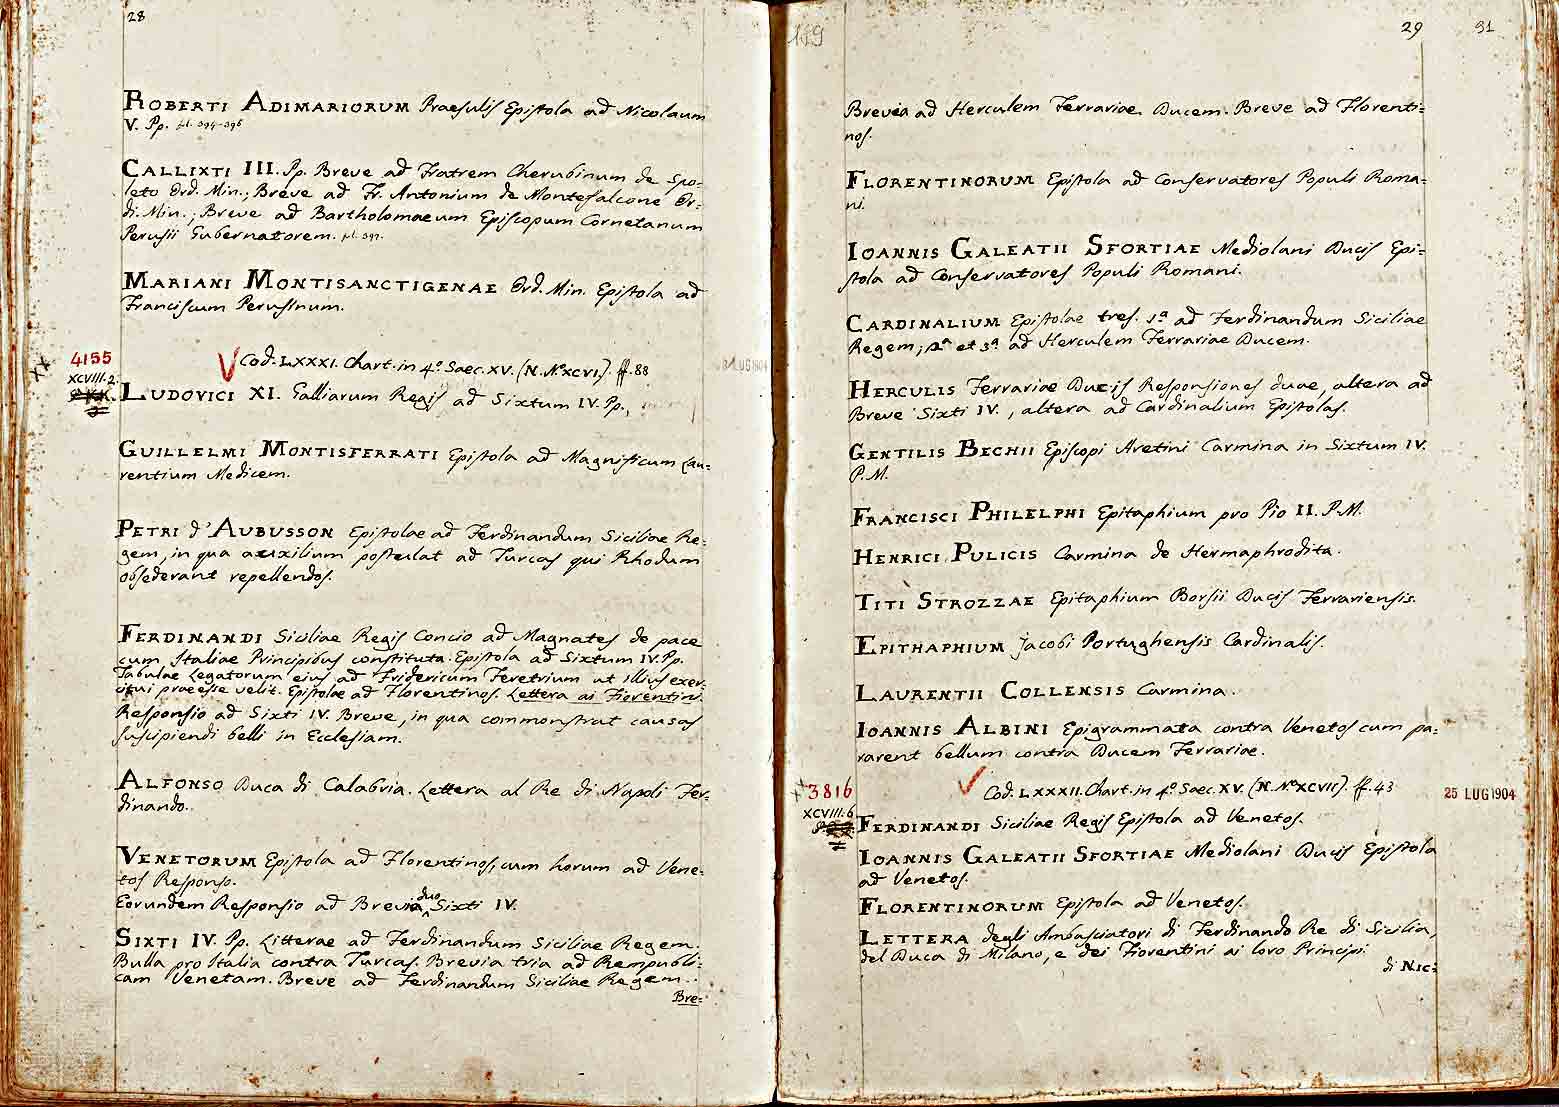 28
ROBERTI ADIMARIORUM Praesulis Epistola ad Nicolaum
V. Pp. fol. 394-396
CALLIXTI III. Pp. Breve ad Fratrem Cherubinum de Spo-
leto Ord. Min.; Breve ad Fr. Antonium de Montefalcone Or-
di. Min.; Breve ad Bartholomaeum Episcopum Cornetanum
Perusii Gubernatorem. fol. 397.
MARIANI MONTISANCTIGENAE Ord. Min. Epistola ad
Franciscum Perusinum.
4155
XCVIII-2.
Cod. LXXXI. Chart. in 4º. Saec. XV. (N. Nº XCVI.) ff. 88
LUDOVICI XI. Galliarum Regis ad Sixtum IV. Pp.,
GUILLELMI MONTISFERRATI Epistola ad Magnificum Lau=
rentium Medicem.
PETRI d'AUBUSSON Epistolae ad Ferdinandum Siciliae Re=
gem, in qua auxilium postulat ad Turcas qui Rhodum
obsederant repellendos.
FERDINANDI Siciliae Regis Concio ad Magnates de pace
cum Italiae Principibus constituta. Epistola ad Sixtum IV. Pp.
Tabulae Legatorum eius ad Fridericum Feretrium ut illius exer-
citui praeesse velit. Epistolae ad Florentinos. Lettera ai Fiorentini.
Responsio ad Sixti IV. Breve, in qua commonstrat causas
suscipiendi belli in Ecclesiam.
ALFONSO Duca di Calabria. Lettera al Re di Napoli Fer-
dinando.
VENETORUM Epistola ad Florentinos, cum horum ad Vene-
tos Responso.
Eorundem Responsio ad Brevia duo Sixti IV.
SIXTI IV. Pp. Litterae ad Ferdinandum Siciliae Regem.
Bulla pro Italia contra Turcas. Brevia tria ad Rempubli-
cam Venetam. Breve ad Ferdinandum Siciliae Regem.
Bre=
189
29
31
Brevia ad Herculem Ferrariae Ducem. Breve ad Florenti=
nos.
FLORENTINORUM Epistola ad Conservatores Populi Roma-
ni.
IOANNIS GALEATII SFORTIAE Mediolani Ducis Epi=
stola ad Conservatores Populi Romani.
CARDINALIUM Epistolae tres. 1ª ad Ferdinandum Siciliae
Regem; 2ª et 3ª ad Herculem Ferrariae Ducem.
HERCULIS Ferrariae Ducis Responsiones duae, altera ad
Breve Sixti IV., altera ad Cardinalium Epistolas.
GENTILIS BECHII Episcopi Aretini Carmina in Sixtum IV.
P.M.
FRANCISCI PHILELPHI Epitaphium pro Pio II. P.M.
HENRICI PULICIS Carmina de Hermaphrodita.
TITI STROZZAE Epitaphium Borsii Ducis Ferrariensis.
EPITHAPHIUM Jacobi Portughensis Cardinalis.
LAURENTII COLLENSIS Carmina.
IOANNIS ALBINI Epigrammata contra Venetos cum pa=
rarent bellum contra Ducem Ferrariae.
3816
XCVIII.6
Cod. LXXXII. Chart. in 4º. Saec. XV. (N. Nº XCVII). ff. 43
25 LUG 1904
FERDINANDI Siciliae Regis Epistola ad Venetos.
IOANNIS GALEATII SFORTIAE Mediolani Ducis Epistola
ad Venetos.
FLORENTINORUM Epistola ad Venetos.
LETTERA degli Ambasciatori di Ferdinando Re di Sicilia,
del Duca di Milano, e dei Fiorentini ai loro Principi.
di NIC=